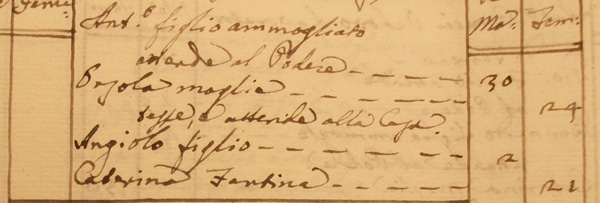 Ant.º figlio ammogliato Ma: Fem:
attende al Podere 30
Orsola moglie
tesse, e attende alla Casa. 24
Angiolo figlio 2
Caterina Fantina 21